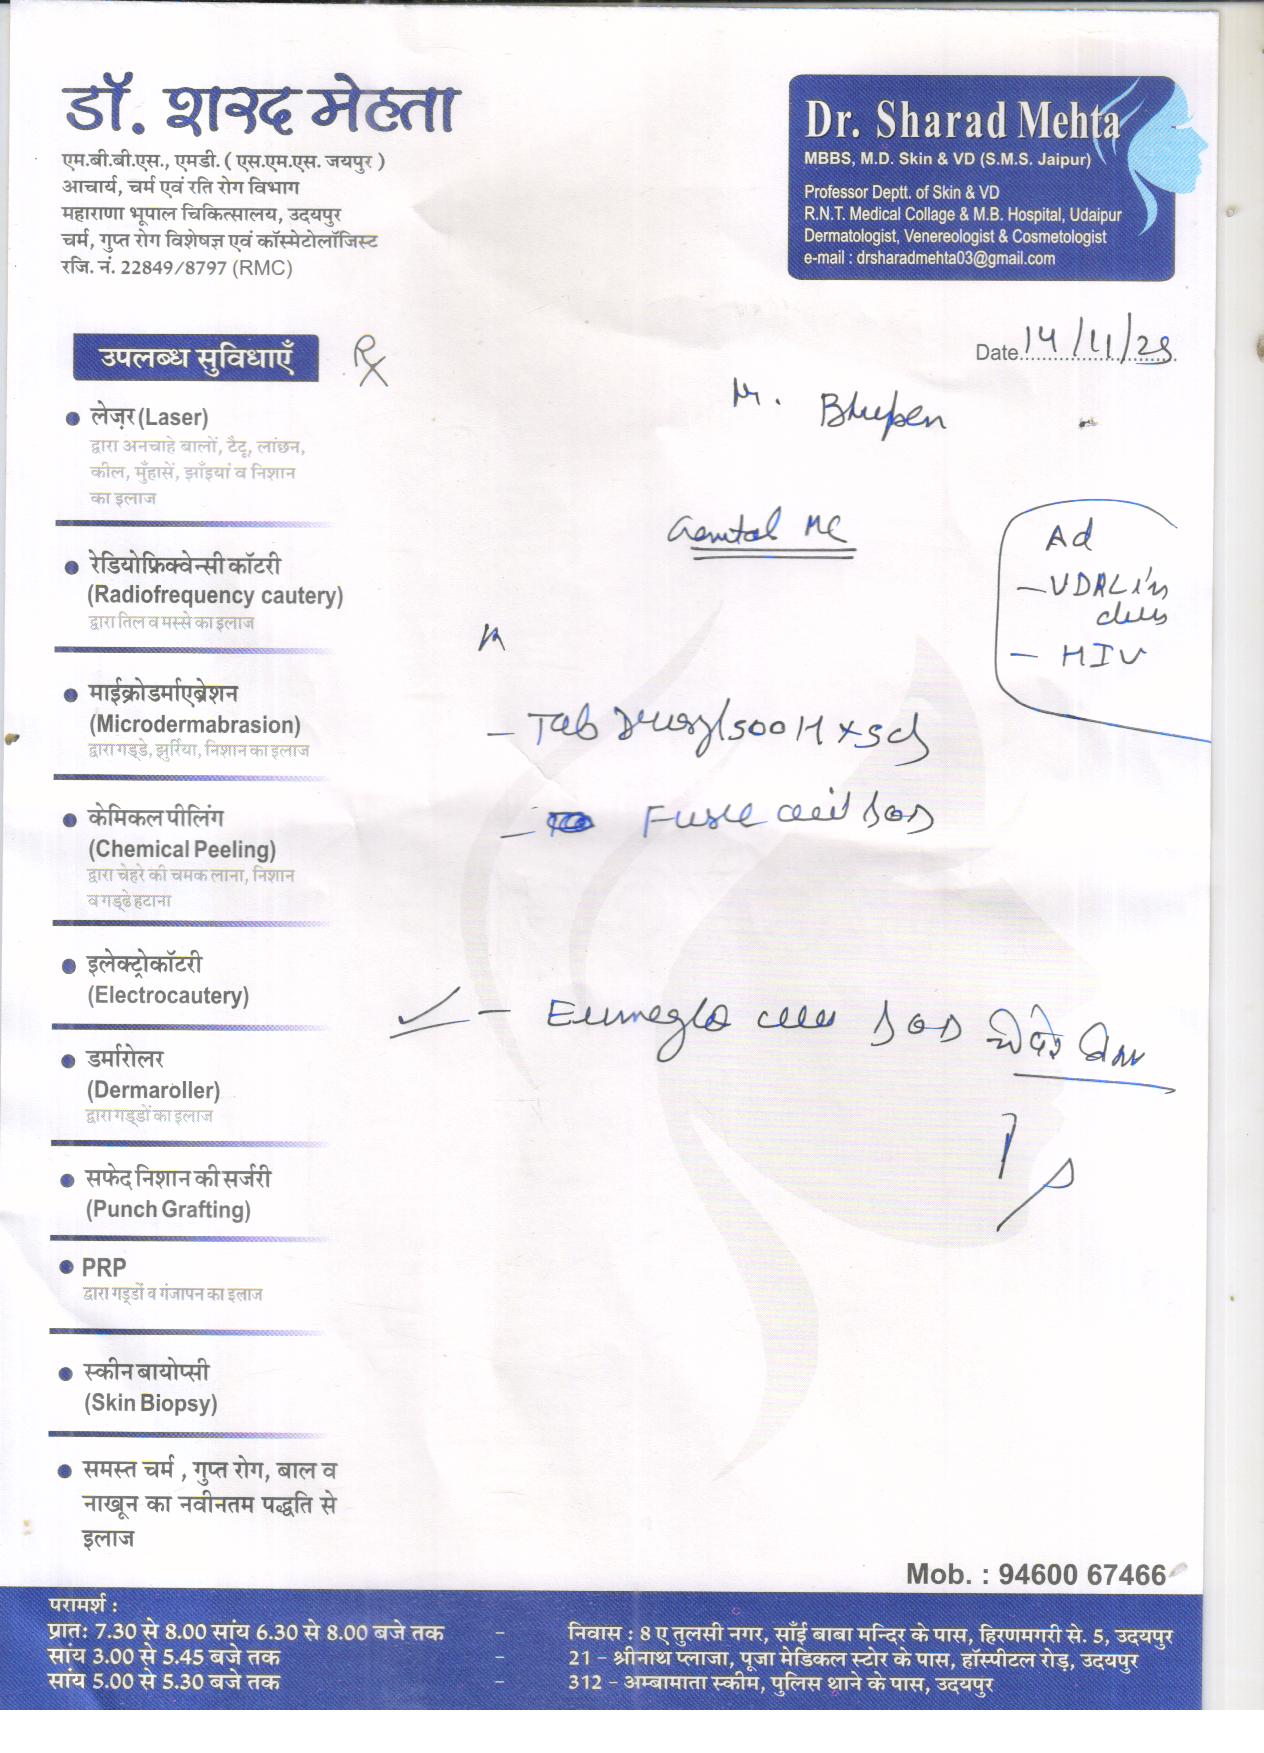 डॉ. शरद मेहता
एम.बी.बी.एस., एमडी. ( एस.एम.एस. जयपुर )
आचार्य, चर्म एवं रति रोग विभाग
महाराणा भूपाल चिकित्सालय, उदयपुर
चर्म, गुप्त रोग विशेषज्ञ एवं कॉस्मेटोलॉजिस्ट
रजि. नं. 22849/8797 (RMC)
Dr. Sharad Mehta
MBBS, M.D. Skin & VD (S.M.S. Jaipur)
Professor Deptt. of Skin & VD
R.N.T. Medical Collage & M.B. Hospital, Udaipur
Dermatologist, Venereologist & Cosmetologist
e-mail : drsharadmehta03@gmail.com
Date 14/11/25
Bhupen
Genital
Ad
- VDRL in
- HIV
- Tab 500
BD
BD
उपलब्ध सुविधाएँ
Rx
लेज़र (Laser)
द्वारा अनचाहे बालों, टैटू, लांछन,
कील, मुँहासें, झाँइयां व निशान
का इलाज
रेडियोफ्रिक्वेन्सी कॉटरी
(Radiofrequency cautery)
द्वारा तिल व मस्से का इलाज
माईक्रोडर्माएब्रेशन
(Microdermabrasion)
द्वारा गड्डे, झुर्रिया, निशान का इलाज
केमिकल पीलिंग
(Chemical Peeling)
द्वारा चेहरे की चमक लाना, निशान
व गड्ढे हटाना
इलेक्ट्रोकॉटरी
(Electrocautery)
डर्मारोलर
(Dermaroller)
द्वारा गड्डों का इलाज
सफेद निशान की सर्जरी
(Punch Grafting)
PRP
द्वारा गड्डों व गंजापन का इलाज
स्कीन बायोप्सी
(Skin Biopsy)
समस्त चर्म , गुप्त रोग, बाल व
नाखून का नवीनतम पद्धति से
इलाज
Mob. : 94600 67466
परामर्श :
प्रातः 7.30 से 8.00 सांय 6.30 से 8.00 बजे तक - निवास : 8 ए तुलसी नगर, साँई बाबा मन्दिर के पास, हिरणमगरी से. 5, उदयपुर
सांय 3.00 से 5.45 बजे तक - 21 - श्रीनाथ प्लाजा, पूजा मेडिकल स्टोर के पास, हॉस्पीटल रोड़, उदयपुर
सांय 5.00 से 5.30 बजे तक - 312 - अम्बामाता स्कीम, पुलिस थाने के पास, उदयपुर